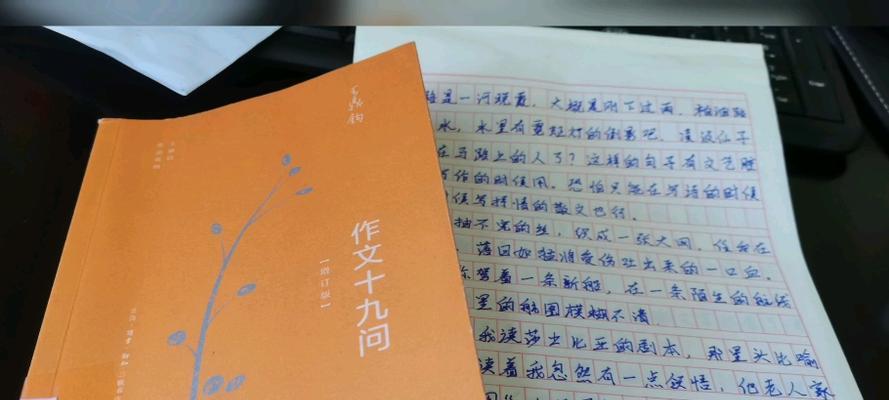 王鼎钧
作文十九问
【增订版】
是一河现霓,大概是刚下过雨,柏油路
水,水里有霓虹灯的倒影吧,凌波仙子
在马路上的人了?这样的句子有文艺腔
写作的时候用,恐怕只能在写诗的时候
候写抒情的散文也行。
抽不完的丝,织成一张大网,任我在
落日如猛狮受伤吐出来的一口血。
你驾着一条新船,在一条陌生的航线
里的航图模糊不清
我读莎士比亚的剧本,那里头比喻
读着我忽然有一点领悟,他老人家